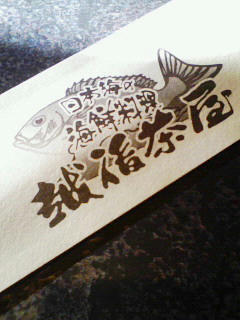 日本海の
海鮮料理
越後茶屋